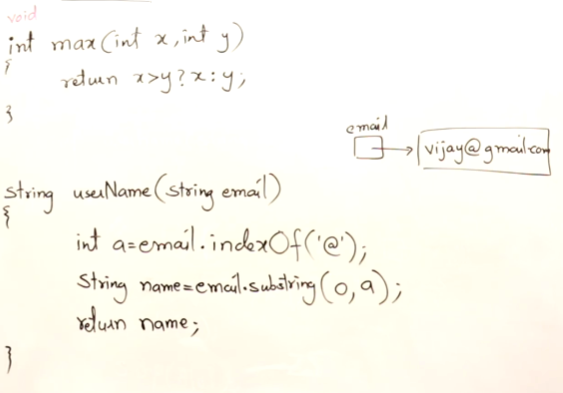 void
int max(int x, int y)
{
return x>y?x:y;
}
email
vijay@gmail.com
String userName(String email)
{
int a=email.indexOf('@');
String name=email.substring(0,a);
return name;
}